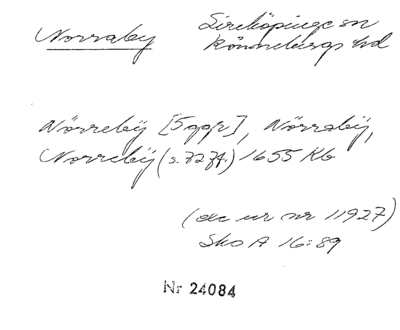 Norraby Sireköpinge sn
Rönnebergs hd
Nörrebÿ [5 ggr], Nörrabÿ,
Norrebÿ (s. 72 ff.) 1655 Kb
(exc ur nr 11927)
Sko A 16:89
Nr 24084